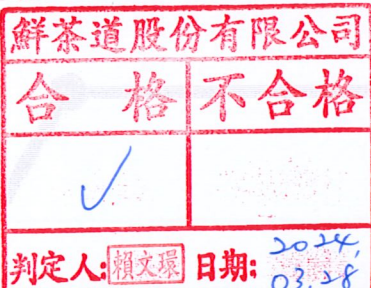 鮮茶道股份有限公司
合格 不合格
✓
判定人:賴文環 日期:2024,
03.28